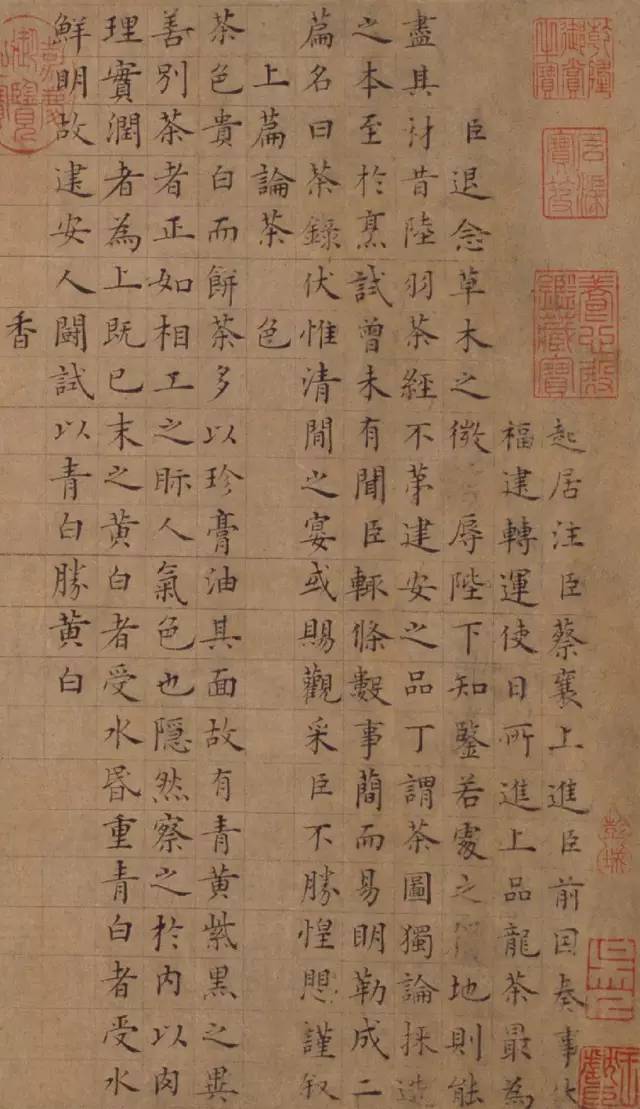 石渠寶笈
養心殿鑑藏寶
起居注臣蔡襄上進臣前因奏事伏
福建轉運使日所進上品龍茶最為
臣退念草木之微辱陛下知鑒若處之地則能
盡其材昔陸羽茶經不苐建安之品丁謂茶圖獨論採造
之本至於烹試曾未有聞臣輒條數事簡而易明勒成二
篇名曰茶錄伏惟清間之宴或賜觀采臣不勝惶懼謹叙
上篇論茶
色
茶色貴白而餅茶多以珍膏油其面故有青黃紫黑之異
善別茶者正如相工之眎人氣色也隱然察之於內以肉
理實潤者為上既已末之黃白者受水昏重青白者受水
鮮明故建安人闘試以青白勝黃白
香